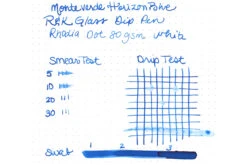 Monteverde Horizon Blue
R&K Glass Dip Pen
Rhodia Dot 80gsm white
Smear Test Drip Test
5
10
20
30
Swab 1 2 3